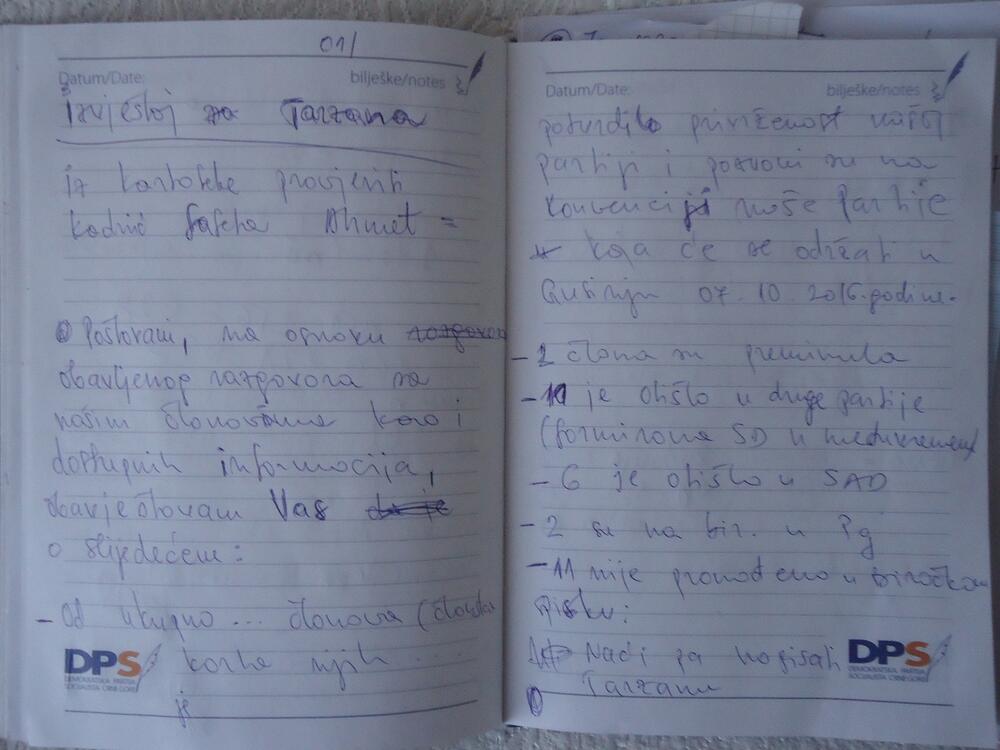 01/
Datum/Date:
bilješke/notes
Izvještaj za Tarzana
iz kartoteke provjeriti
Kadrić Ahmet =
Poštovani, na osnovu razgovora
obavljenog razgovora sa
našim članovima kao i
dostupnih informacija,
obavještavam Vas
o slijedećem:
- Od ukupno ... članova (članska
karta njih ...
je
DPS
DEMOKRATSKA PARTIJA
SOCIJALISTA CRNE GORE
Datum/Date:
bilješke/notes
potvrdilo privrženost našoj
partiji i pozvani su na
konvenciju naše Partije
koja će se održati u
Gusinju 07.10.2016. godine.
- 2 člana su preminula
- 10 je otišlo u druge partije
(formirana SD u međuvremenu
- 6 je otišlo u SAD
- 2 su na bir. u Pg
- 11 nije pronađeno u biračkom
spisku:
Naći za napisati
Tarzanu
DPS
DEMOKRATSKA PARTIJA
SOCIJALISTA CRNE GORE